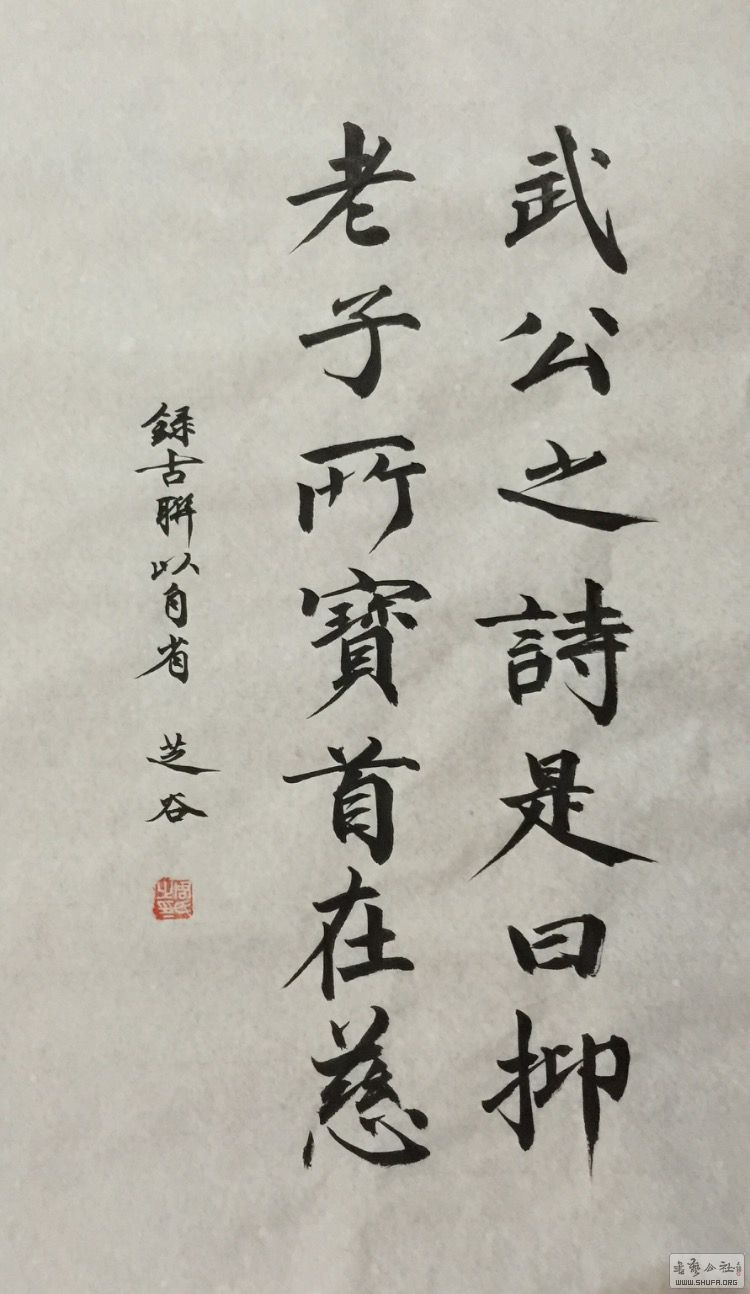 武公之詩是曰抑
老子所寳首在慈
録古聯以自省 芝谷
WWW.SHUFA.ORG